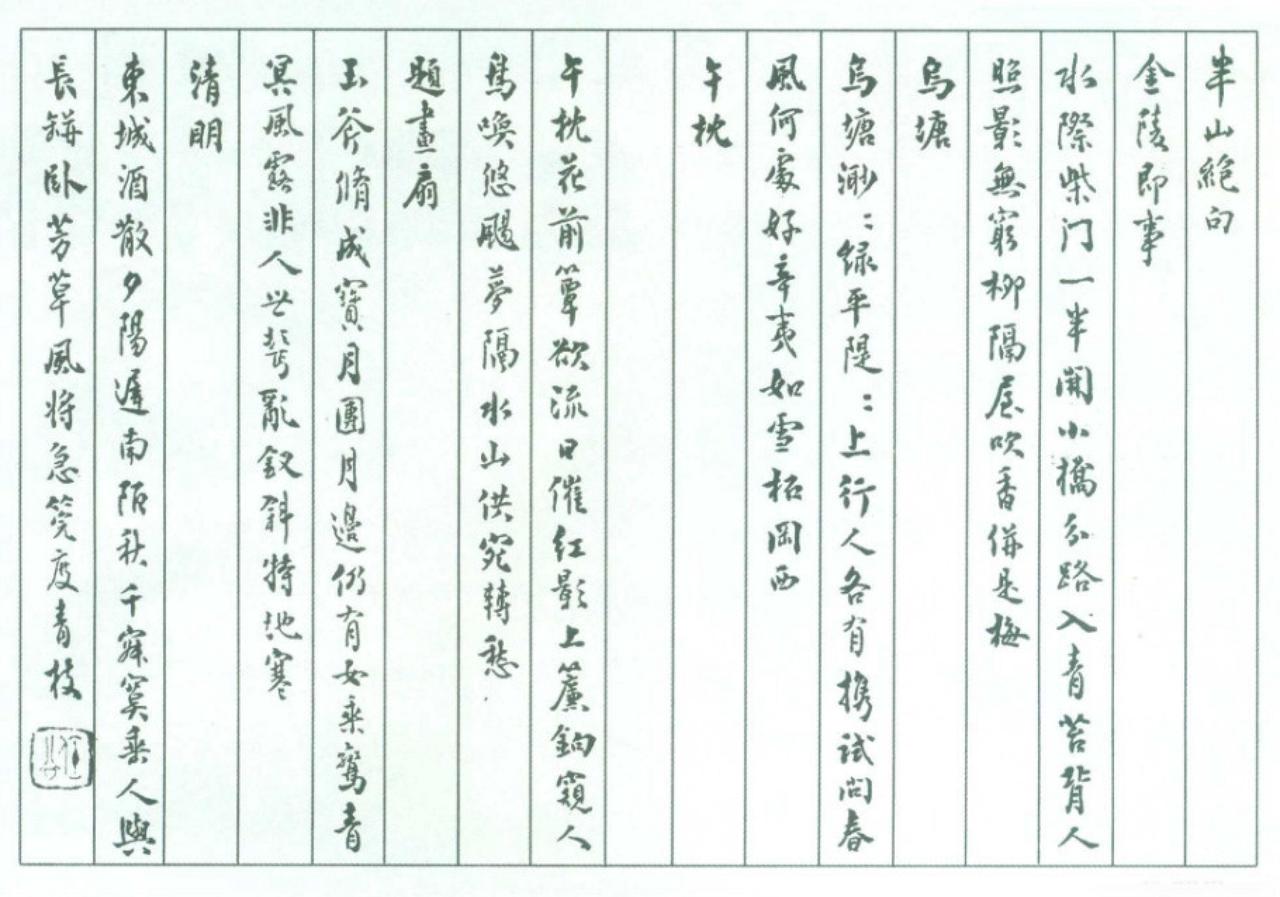 半山絕句
金陵即事
水際柴门一半開小橋分路入青苔背人
照影無窮柳隔屋吹香併是梅
烏塘
烏塘渺:綠平隄:上行人各有携試問春
風何處好辛夷如雪柘岡西
午枕
午枕花前簟欲流日催红影上簾鉤窺人
鳥喚悠颺夢隔水山供宛轉愁
題畫扇
玉斧脩成寶月團月邊仍有女乘鸞青
冥風露非人世鬢亂釵斜特地寒
清明
東城酒散夕陽遲南陌秋千寂寞垂人與
長缾卧芳草風将急筦度青枝